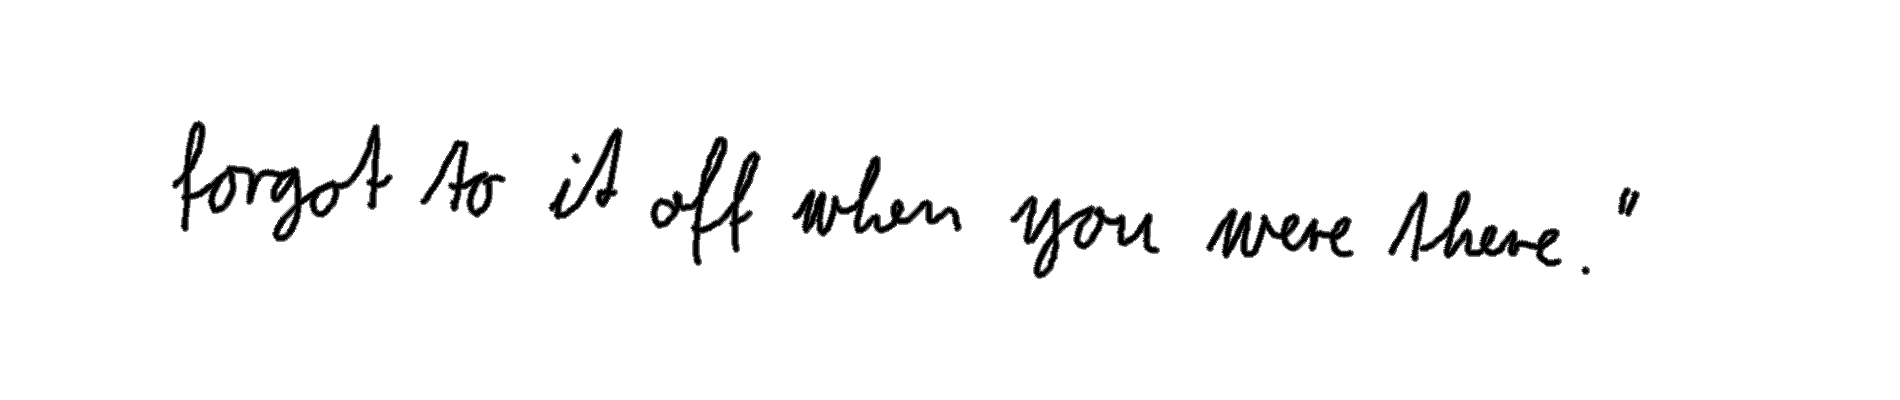 forgot to it off when you were there."